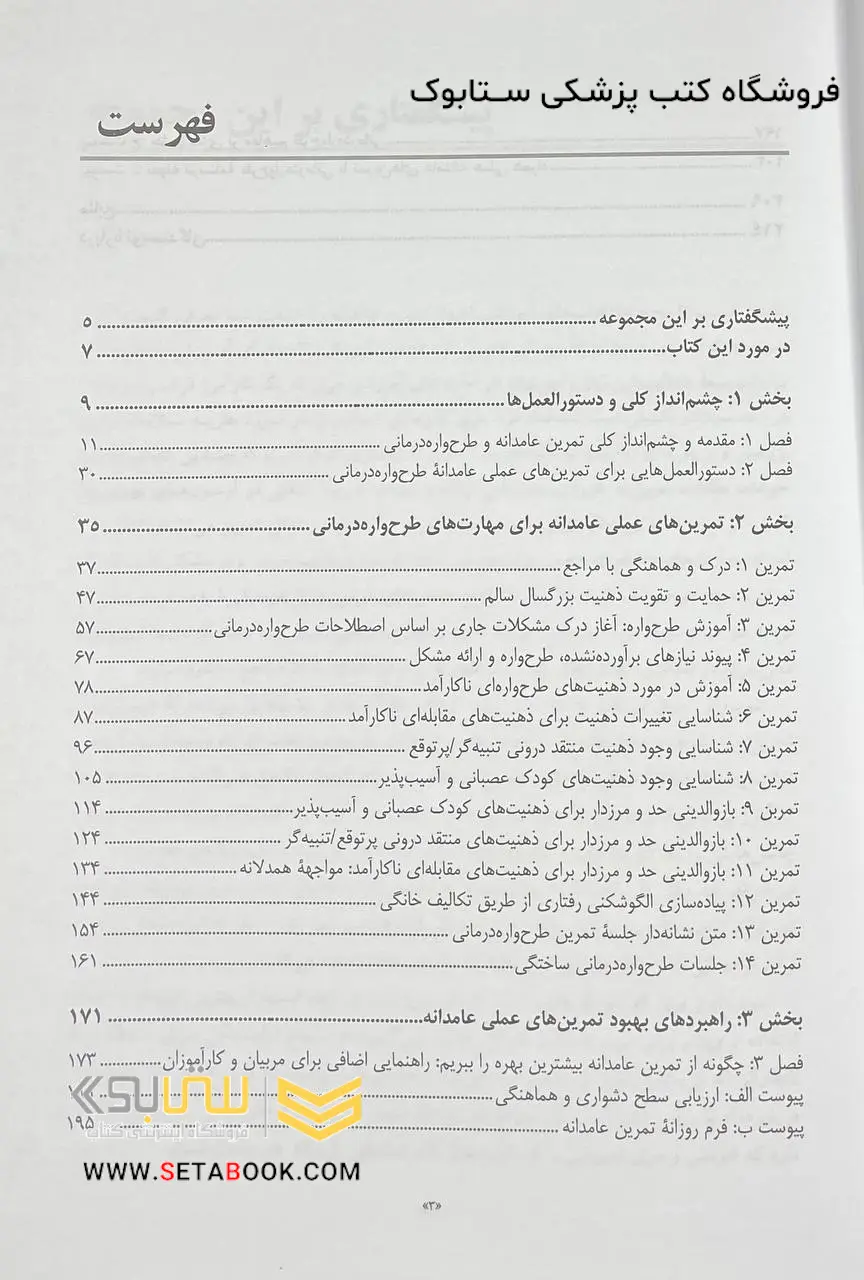 فروشگاه کتب پزشکی ستابوک
فهرست
پیشگفتاری بر این مجموعه ۵
در مورد این کتاب ۷
بخش ۱: چشم‌انداز کلی و دستورالعمل‌ها ۹
فصل ۱: مقدمه و چشم‌انداز کلی تمرین عامدانه و طرح‌واره‌درمانی ۱۱
فصل ۲: دستورالعمل‌هایی برای تمرین‌های عملی عامدانهٔ طرح‌واره‌درمانی ۳۰
بخش ۲: تمرین‌های عملی عامدانه برای مهارت‌های طرح‌واره‌درمانی ۳۵
تمرین ۱: درک و هماهنگی با مراجع ۳۷
تمرین ۲: حمایت و تقویت ذهنیت بزرگسال سالم ۴۷
تمرین ۳: آموزش طرح‌واره: آغاز درک مشکلات جاری بر اساس اصطلاحات طرح‌واره‌درمانی ۵۷
تمرین ۴: پیوند نیازهای برآورده‌نشده، طرح‌واره و ارائه مشکل ۶۷
تمرین ۵: آموزش در مورد ذهنیت‌های طرح‌واره‌ای ناکارآمد ۷۸
تمرین ۶: شناسایی تغییرات ذهنیت برای ذهنیت‌های مقابله‌ای ناکارآمد ۸۷
تمرین ۷: شناسایی وجود ذهنیت منتقد درونی تنبیه‌گر/پرتوقع ۹۶
تمرین ۸: شناسایی وجود ذهنیت‌های کودک عصبانی و آسیب‌پذیر ۱۰۵
تمرین ۹: بازوالدینی حد و مرزدار برای ذهنیت‌های کودک عصبانی و آسیب‌پذیر ۱۱۴
تمرین ۱۰: بازوالدینی حد و مرزدار برای ذهنیت‌های منتقد درونی پرتوقع/تنبیه‌گر ۱۲۴
تمرین ۱۱: بازوالدینی حد و مرزدار برای ذهنیت‌های مقابله‌ای ناکارآمد: مواجههٔ همدلانه ۱۳۴
تمرین ۱۲: پیاده‌سازی الگوشکنی رفتاری از طریق تکالیف خانگی ۱۴۴
تمرین ۱۳: متن نشانه‌دار جلسهٔ تمرین طرح‌واره‌درمانی ۱۵۴
تمرین ۱۴: جلسات طرح‌واره‌درمانی ساختگی ۱۶۱
بخش ۳: راهبردهای بهبود تمرین‌های عملی عامدانه ۱۷۱
فصل ۳: چگونه از تمرین عامدانه بیشترین بهره را ببریم: راهنمایی اضافی برای مربیان و کارآموزان ۱۷۳
پیوست الف: ارزیابی سطح دشواری و هماهنگی
پیوست ب: فرم روزانهٔ تمرین عامدانه ۱۹۵
ستابوک
فروشگاه اینترنتی کتاب
WWW.SETABOOK.COM
«۳»